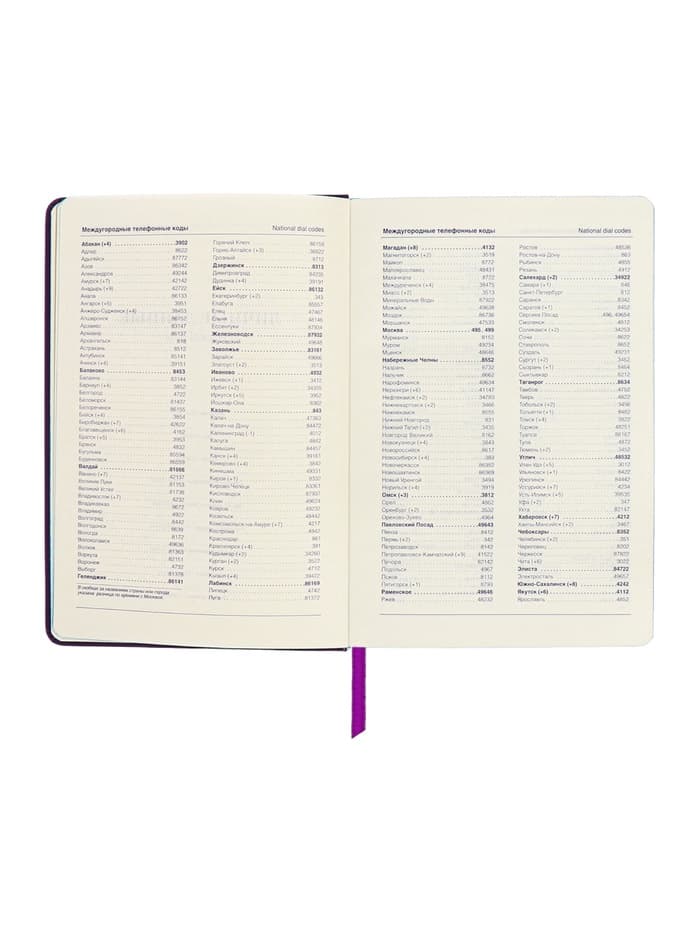 Междугородные телефонные коды
National dial codes
Абакан (+4) 3902
Адлер 8622
Адыгейск 87772
Азов 86342
Александров 49244
Амурск (+7) 42142
Анадырь (+9) 42722
Анапа 86133
Ангарск (+5) 3951
Анжеро-Судженск (+4) 38453
Апшеронск 86152
Арзамас 83147
Армавир 86137
Архангельск 818
Астрахань 8512
Ахтубинск 85141
Ачинск (+4) 39151
Балаково 8453
Балахна 83144
Барнаул (+4) 3852
Белгород 4722
Беломорск 81437
Белореченск 86155
Бийск (+4) 3854
Биробиджан (+7) 42622
Благовещенск (+6) 4162
Братск (+5) 3953
Брянск 4832
Бугульма 85594
Буденновск 86559
Валдай 81666
Ванино (+7) 42137
Великие Луки 81153
Великий Устюг 81738
Владивосток (+7) 4232
Владикавказ 8672
Владимир 4922
Волгоград 8442
Волгодонск 8639
Вологда 8172
Волоколамск 49636
Волхов 81363
Воркута 82151
Воронеж 4732
Выборг 81378
Геленджик 86141
В скобках за названием страны или города
указана разница по времени с Москвой.
Горячий Ключ 86159
Горно-Алтайск (+3) 38822
Грозный 8712
Дзержинск 8313
Димитровград 84235
Дудинка (+4) 39191
Ейск 86132
Екатеринбург (+2) 343
Елабуга 85557
Елец 47467
Ельня 48146
Ессентуки 87934
Железноводск 87932
Жуковский 49648
Заволжье 83161
Зарайск 49666
Златоуст (+2) 3513
Иваново 4932
Ижевск (+1) 3412
Ирбит (+2) 34355
Иркутск (+5) 3952
Йошкар-Ола 8362
Казань 843
Калач 47363
Калач-на-Дону 84472
Калининград (-1) 4012
Калуга 4842
Камышин 84457
Канск (+4) 39161
Кемерово (+4) 3842
Кинешма 49331
Киров (+1) 8332
Кирово-Чепецк 83361
Кисловодск 87937
Клин 49624
Ковров 49232
Козельск 48442
Комсомольск-на-Амуре (+7) 4217
Кострома 4942
Краснодар 861
Красноярск (+4) 391
Кудымкар (+2) 34260
Курган (+2) 3522
Курск 4712
Кызыл (+4) 39422
Лабинск 86169
Липецк 4742
Луга 81372
Междугородные телефонные коды
National dial codes
Магадан (+8) 4132
Магнитогорск (+2) 3519
Майкоп 8772
Малоярославец 48431
Махачкала 8722
Междуреченск (+4) 38475
Миасс (+2) 3513
Минеральные Воды 87922
Можайск 49638
Моздок 86736
Моршанск 47533
Москва 495, 499
Мурманск 8152
Муром 49234
Мценск 48646
Набережные Челны 8552
Назрань 8732
Нальчик 8662
Нарофоминск 49634
Нерюнгри (+6) 41147
Нефтекамск (+2) 34783
Нижневартовск (+2) 3466
Нижнекамск 8555
Нижний Новгород 831
Нижний Тагил (+2) 3435
Новгород Великий 8162
Новокузнецк (+4) 3843
Новороссийск 8617
Новосибирск (+4) 383
Новочеркасск 86352
Новошахтинск 86369
Новый Уренгой 3494
Норильск (+4) 3919
Омск (+3) 3812
Орел 4862
Оренбург (+2) 3532
Орехово-Зуево 4964
Павловский Посад 49643
Пенза 8412
Пермь (+2) 342
Петрозаводск 8142
Петропавловск-Камчатский (+9) 41522
Печора 82142
Подольск 4967
Псков 8112
Пятигорск (+1) 8793
Раменское 49646
Ржев 48232
Ростов 48536
Ростов-на-Дону 863
Рыбинск 4855
Рязань 4912
Салехард (+2) 34922
Самара (+1) 846
Санкт-Петербург 812
Саранск 8342
Саратов (+1) 8452
Сергиев Посад 496, 49654
Смоленск 4812
Соликамск (+2) 34253
Сочи 8622
Ставрополь 8652
Суздаль 49231
Сургут (+2) 3462
Сызрань (+1) 8464
Сыктывкар 8212
Таганрог 8634
Тамбов 4752
Тверь 4822
Тобольск (+2) 3456
Тольятти (+1) 8482
Томск (+4) 3822
Торжок 48251
Туапсе 86167
Тула 4872
Тюмень (+2) 3452
Углич 48532
Улан-Удэ (+5) 3012
Ульяновск (+1) 8422
Урюпинск 84442
Уссурийск (+7) 4234
Усть-Илимск (+5) 39535
Уфа (+2) 347
Ухта 82147
Хабаровск (+7) 4212
Ханты-Мансийск (+2) 3467
Чебоксары 8352
Челябинск (+2) 351
Череповец 8202
Черкесск 87822
Чита (+6) 3022
Элиста 84722
Электросталь 49657
Южно-Сахалинск (+8) 4242
Якутск (+6) 4112
Ярославль 4852